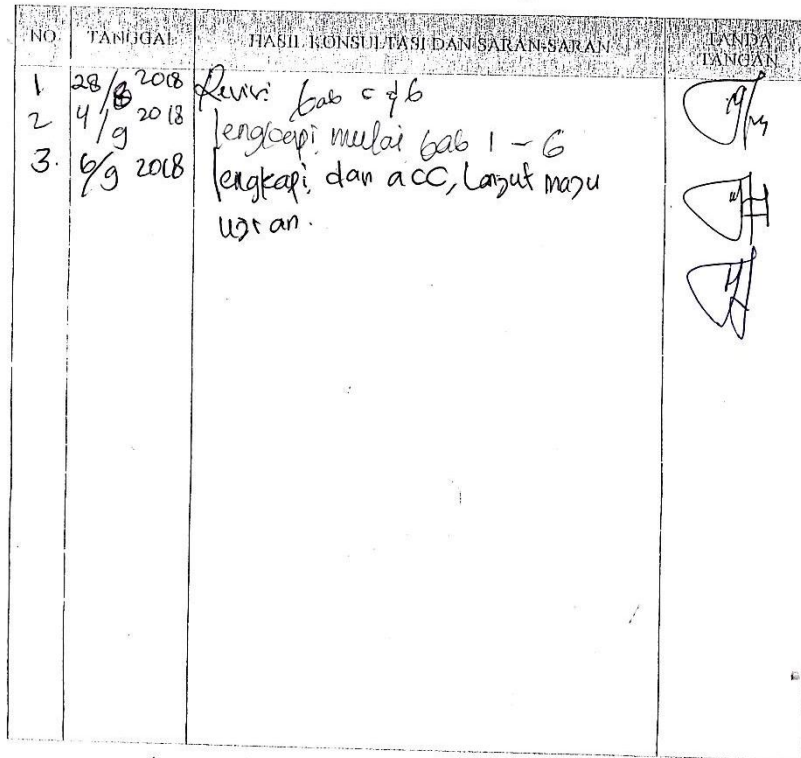 NO. TANGGAL HASIL KONSULTASI DAN SARAN-SARAN TANDA TANGAN
1 28/8 2018 Revisi bab 5 & 6
2 4/9 2018 lengkapi mulai bab 1 - 6
3. 6/9 2018 lengkapi, dan acc, Lanjut maju
ujian.